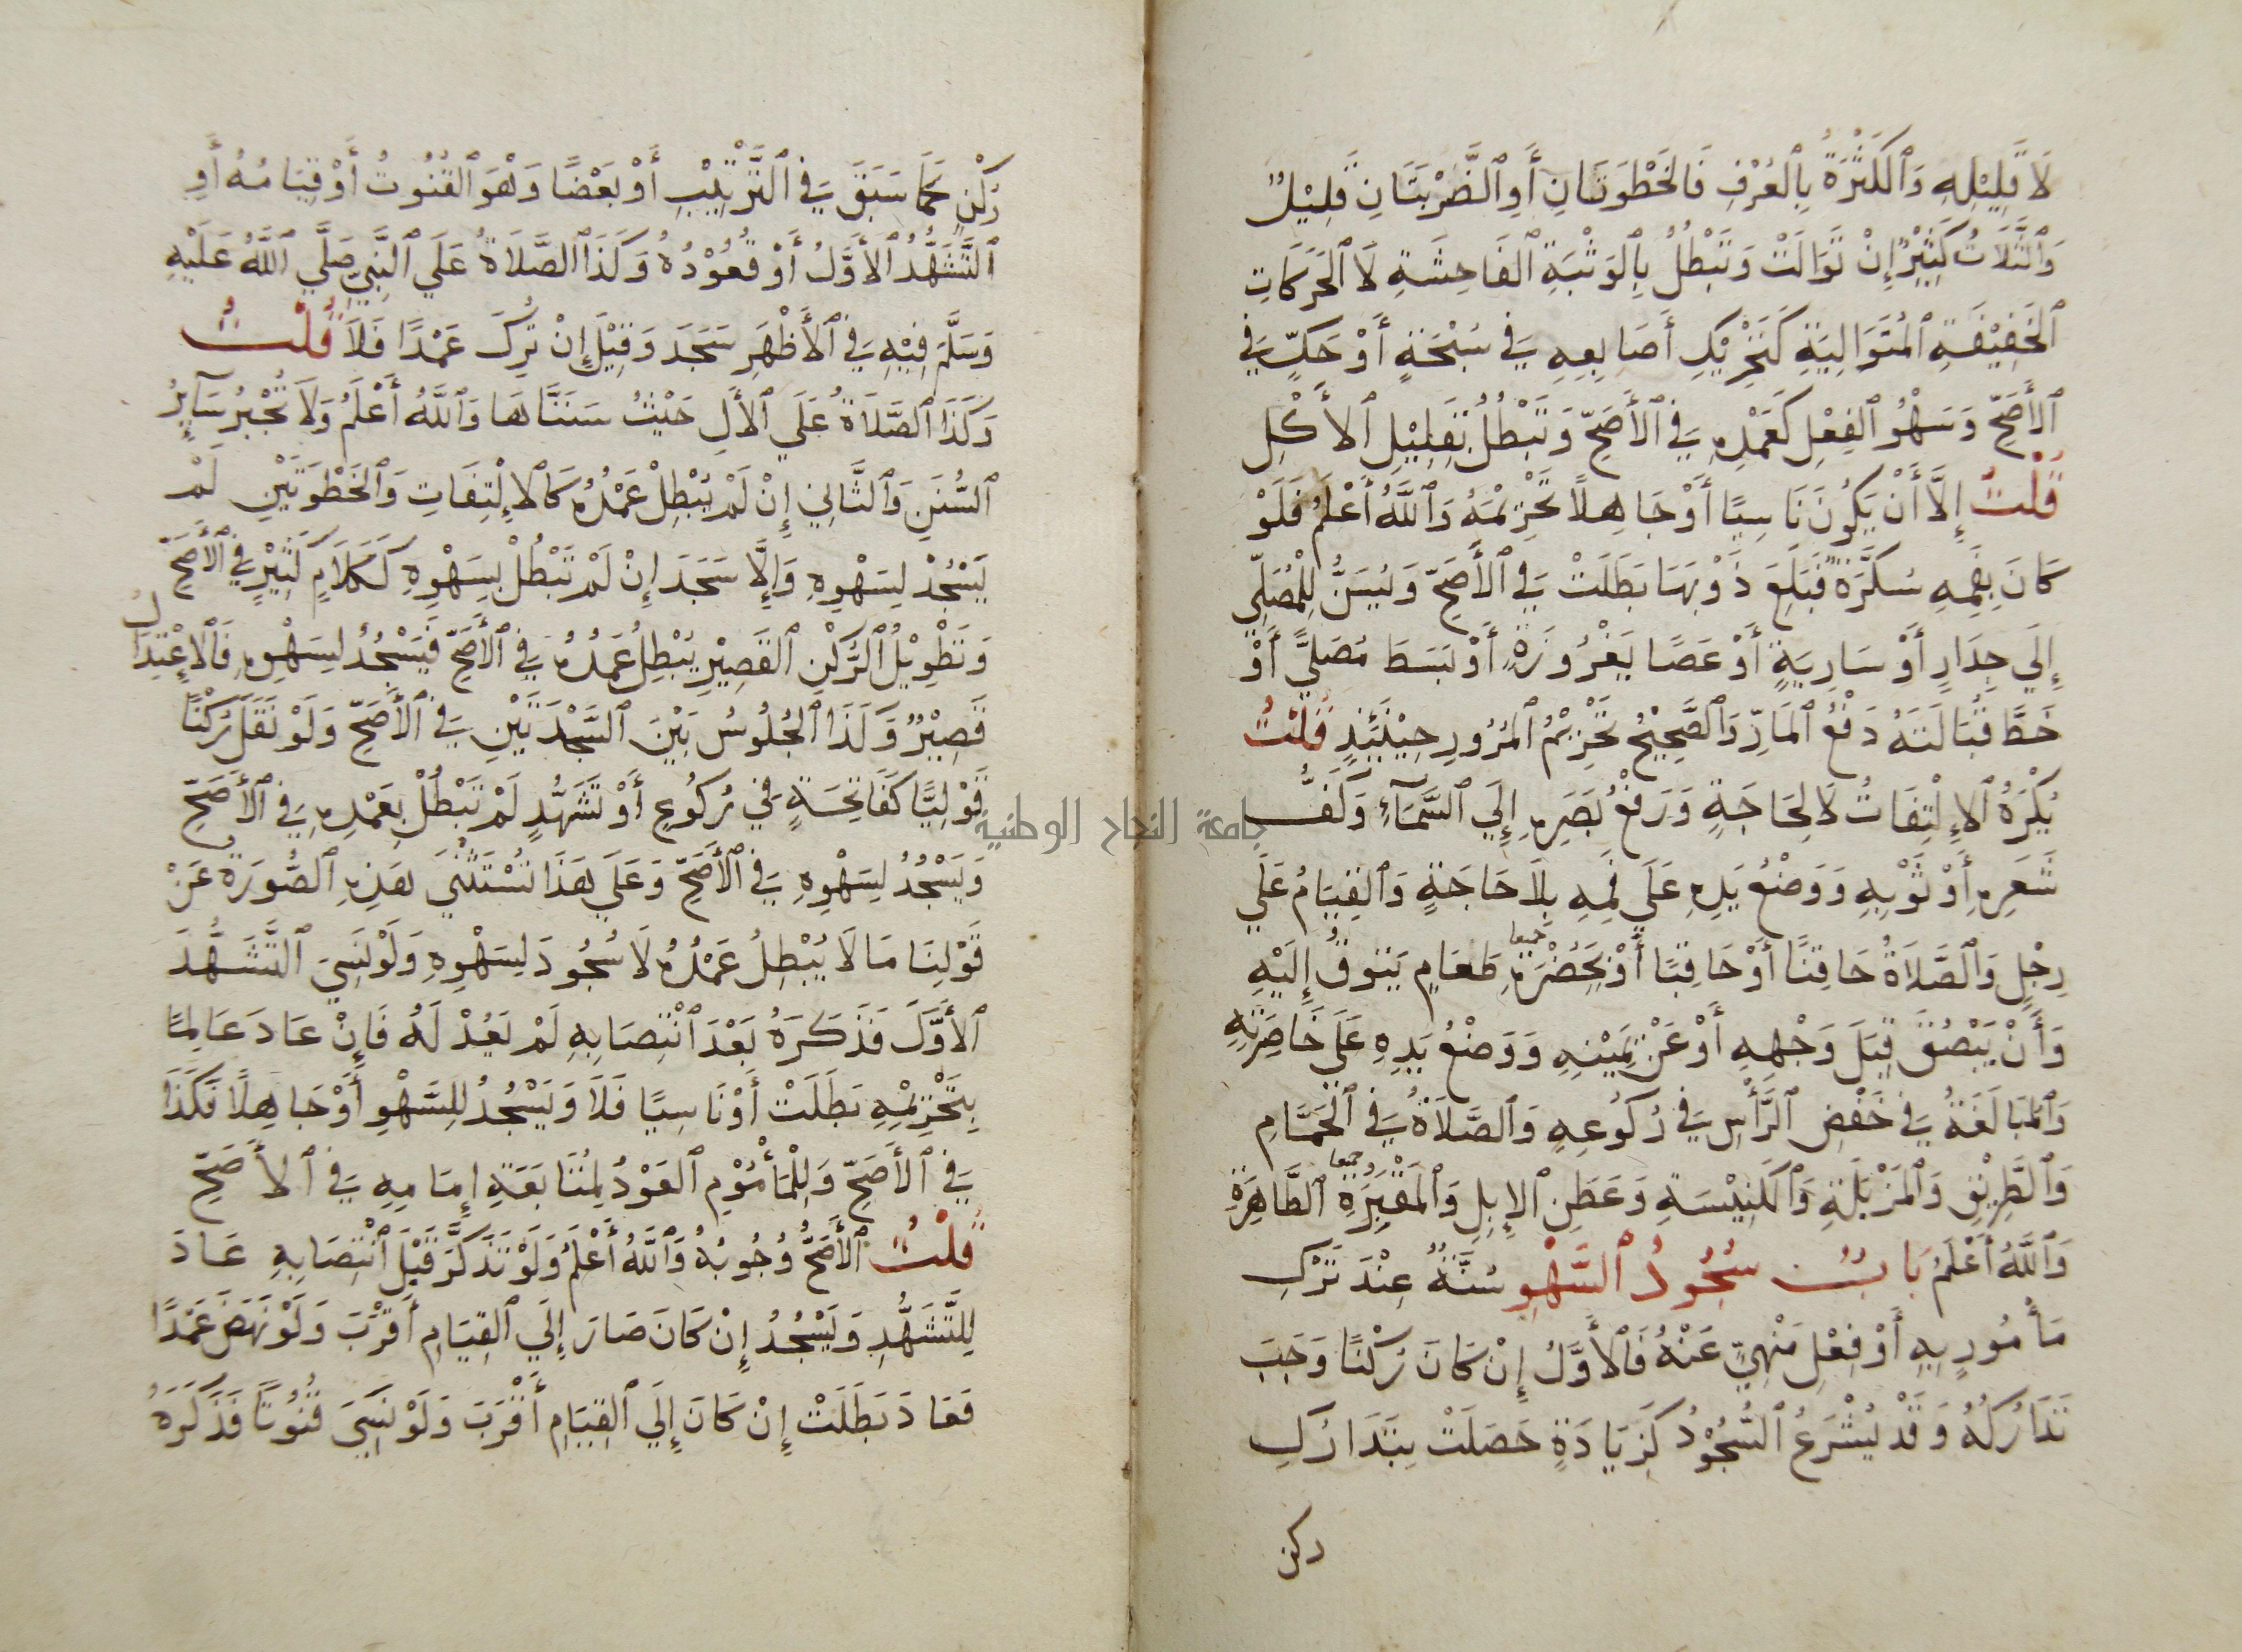 لَا قَلِيْلِهِ وَٱلْكَثْرَةُ بِٱلْعُرْفِ فَالْخَطْوَتَانِ أَوِ ٱلضَّرْبَتَانِ قَلِيْلٌ
وَٱلثَّلَاثُ كَثِيْرٌ إِنْ تَوَالَتْ وَتَبْطُلُ بِٱلْوَثْبَةِ ٱلْفَاحِشَةِ لَا ٱلْحَرَكَاتِ
ٱلْخَفِيْفَةِ ٱلْمُتَوَالِيَةِ كَتَحْرِيْكِ أَصَابِعِهِ فِي سُبْحَةٍ أَوْ حَكٍّ فِي
ٱلْأَصَحِّ وَسَهْوُ ٱلْفِعْلِ كَعَمْدِهِ فِي ٱلْأَصَحِّ وَتَبْطُلُ بِقَلِيْلِ ٱلْأَكْلِ
قُلْتُ إِلَّا أَنْ يَكُونَ نَاسِيًا أَوْ جَاهِلًا تَحْرِيْمَهُ وَٱللَّهُ أَعْلَمُ فَلَوْ
كَانَ بِفَمِهِ سُكَّرَةٌ فَبَلِعَ ذَوْبَهَا بَطَلَتْ فِي ٱلْأَصَحِّ وَيُسَنُّ لِلْمُصَلِّي
إِلَي جِدَارٍ أَوْ سَارِيَةٍ أَوْ عَصًا مَغْرُوزَةٍ أَوْ بَسَطَ مُصَلًّي أَوْ
خَطَّ قُبَالَتَهُ دَفْعُ ٱلْمَارِّ وَٱلصَّحِيْحُ تَحْرِيْمُ ٱلْمُرُورِ حِيْنَئِذٍ قُلْتُ
يُكْرَهُ ٱلْإِلْتِفَاتُ لَا لِحَاجَةٍ وَرَفْعُ بَصَرِهِ إِلَي ٱلسَّمَآءِ وَكَفُّ
شَعَرِهِ أَوْ ثَوْبِهِ وَوَضْعُ يَدِهِ عَلَي فَمِهِ بِلَا حَاجَةٍ وَٱلْقِيَامُ عَلَي
رِجْلٍ وَٱلصَّلَاةُ حَاقِنًا أَوْ حَاقِبًا أَوْ بِحَضْرَةِ طَعَامٍ يَتُوقُ إِلَيْهِ
وَأَنْ يَبْصُقَ قِبَلَ وَجْهِهِ أَوْ عَنْ يَمِيْنِهِ وَوَضْعُ يَدِهِ عَلَي خَاصِرَتِهِ
وَٱلْمُبَالَغَةُ فِي خَفْضِ ٱلرَّأْسِ فِي رُكُوعِهِ وَٱلصَّلَاةُ فِي ٱلْحَمَّامِ
وَٱلطَّرِيْقِ وَٱلْمَزْبَلَةِ وَٱلْكَنِيْسَةِ وَعَطَنِ ٱلْإِبِلِ وَٱلْمَقْبَرَةِ ٱلطَّاهِرَةِ
وَٱللَّهُ أَعْلَمُ بَابُ سُجُودُ ٱلسَّهْوِ سُنَّةٌ عِنْدَ تَرْكِ
مَأْمُورٍ بِهِ أَوْ فِعْلِ مَنْهِيٍّ عَنْهُ فَٱلْأَوَّلُ إِنْ كَانَ رُكْنًا وَجَبَ
تَدَارُكُهُ وَقَدْ يُشْرَعُ ٱلسُّجُوْدُ كَزِيَادَةٍ حَصَلَتْ بِتَدَارُكِ
ركن
رُكْنٍ كَمَا سَبَقَ فِي ٱلتَّرْتِيْبِ أَوْ بَعْضًا وَهْوَ ٱلْقُنُوتُ أَوْ قِيَامُهُ أَوِ
ٱلتَّشَهُّدُ ٱلْأَوَّلُ أَوْ قُعُوْدُهُ وَكَذَا ٱلصَّلَاةُ عَلَي ٱلنَّبِيِّ صَلَّي ٱللَّهُ عَلَيْهِ
وَسَلَّمَ فِيْهِ فِي ٱلْأَظْهَرِ سَجَدَ وَقِيْلَ إِنْ تُرِكَ عَمْدًا فَلَا قُلْتُ
وَكَذَا ٱلصَّلَاةُ عَلَي ٱلْأَلِ حَيْثُ سَنَنَّاهَا وَٱللَّهُ أَعْلَمُ وَلَا تُجْبَرُ سَآئِرُ
ٱلسُّنَنِ وَٱلثَّانِي إِنْ لَمْ يُبْطِلْ عَمْدُهُ كَٱلْإِلْتِفَاتِ وَٱلْخَطْوَتَيْنِ لَمْ
يَسْجُدْ لِسَهْوِهِ وَإِلَّا سَجَدَ إِنْ لَمْ تَبْطُلْ بِسَهْوِهِ كَكَلَامٍ كَثِيْرٍ فِي ٱلْأَصَحِّ
وَتَطْوِيْلُ ٱلرُّكْنِ ٱلْقَصِيْرِ يُبْطِلُ عَمْدُهُ فِي ٱلْأَصَحِّ فَيَسْجُدُ لِسَهْوِهِ فَٱلْإِعْتِدَالُ
قَصِيْرٌ وَكَذَا ٱلْجُلُوسُ بَيْنَ ٱلسَّجْدَتَيْنِ فِي ٱلْأَصَحِّ وَلَوْ نَقَلَ رُكْنًا
قَوْلِيًّا كَفَاتِحَةٍ فِي رُكُوعٍ أَوْ تَشَهُّدٍ لَمْ تَبْطُلْ بِعَمْدِهِ فِي ٱلْأَصَحِّ
وَيَسْجُدُ لِسَهْوِهِ فِي ٱلْأَصَحِّ وَعَلَي هَذَا تُسْتَثْنَي هَذِهِ ٱلصُّورَةُ عَنْ
قَوْلِنَا مَا لَا يُبْطِلُ عَمْدُهُ لَا سُجُودَ لِسَهْوِهِ وَلَوْ نَسِيَ ٱلتَّشَهُّدَ
ٱلْأَوَّلَ فَذَكَرَهُ بَعْدَ ٱنْتِصَابِهِ لَمْ يَعُدْ لَهُ فَإِنْ عَادَ عَالِمًا
بِتَحْرِيْمِهِ بَطَلَتْ أَوْ نَاسِيًا فَلَا وَيَسْجُدُ لِلسَّهْوِ أَوْ جَاهِلًا فَكَذَا
فِي ٱلْأَصَحِّ وَلِلْمَأْمُوْمِ ٱلْعَوْدُ لِمُتَابَعَةِ إِمَامِهِ فِي ٱلْأَصَحِّ
قُلْتُ ٱلْأَصَحُّ وُجُوبُهُ وَٱللَّهُ أَعْلَمُ وَلَوْ تَذَكَّرَ قَبْلَ ٱنْتِصَابِهِ عَادَ
لِلتَّشَهُّدِ وَيَسْجُدُ إِنْ كَانَ صَارَ إِلَي ٱلْقِيَامِ أَقْرَبَ وَلَوْ نَهَضَ عَمْدًا
فَعَادَ بَطَلَتْ إِنْ كَانَ إِلَي ٱلْقِيَامِ أَقْرَبَ وَلَوْ نَسِيَ قُنُوتًا فَذَكَرَهُ
جامعة النجاح الوطنية